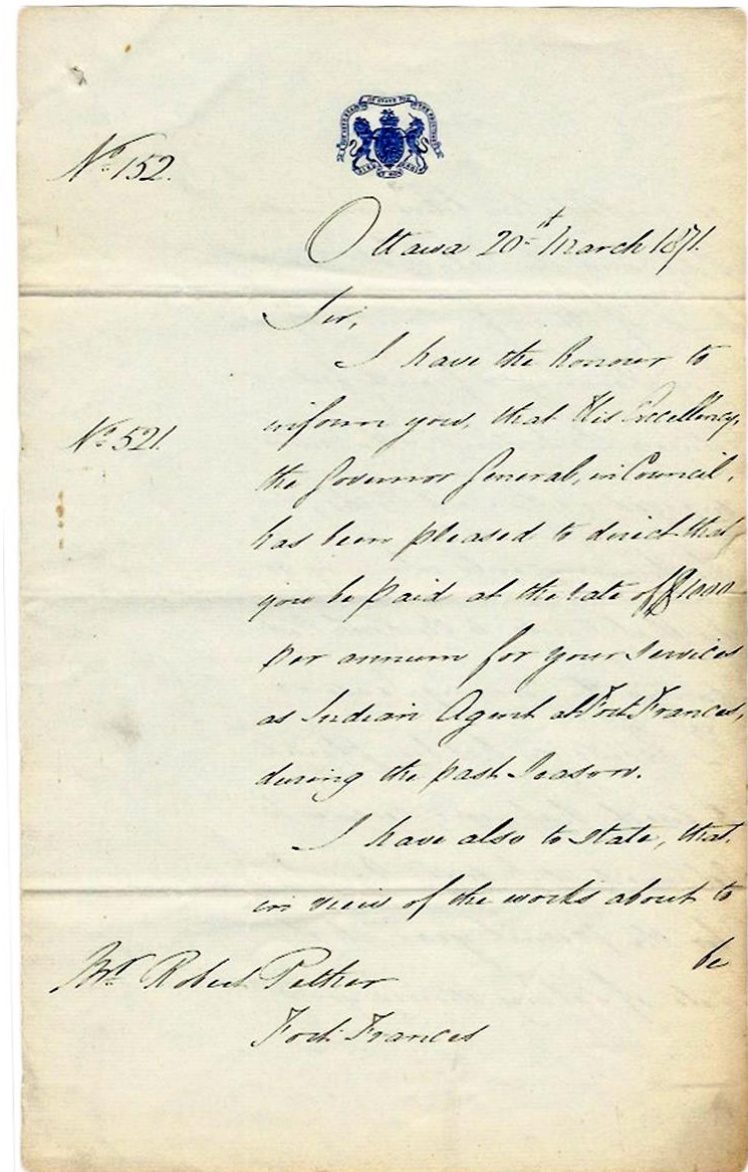 No. 152.
Ottawa 20th March 1871.
Sir,
I have the honour to
No. 521.
inform you, that His Excellency,
the Governor General, in Council,
has been pleased to direct that
you be paid at the rate of $1000
per annum for your services
as Indian Agent at Fort Frances,
during the past Season.
I have also to state, that,
in view of the works about to
be
Mr. Robert Pither
Fort Frances